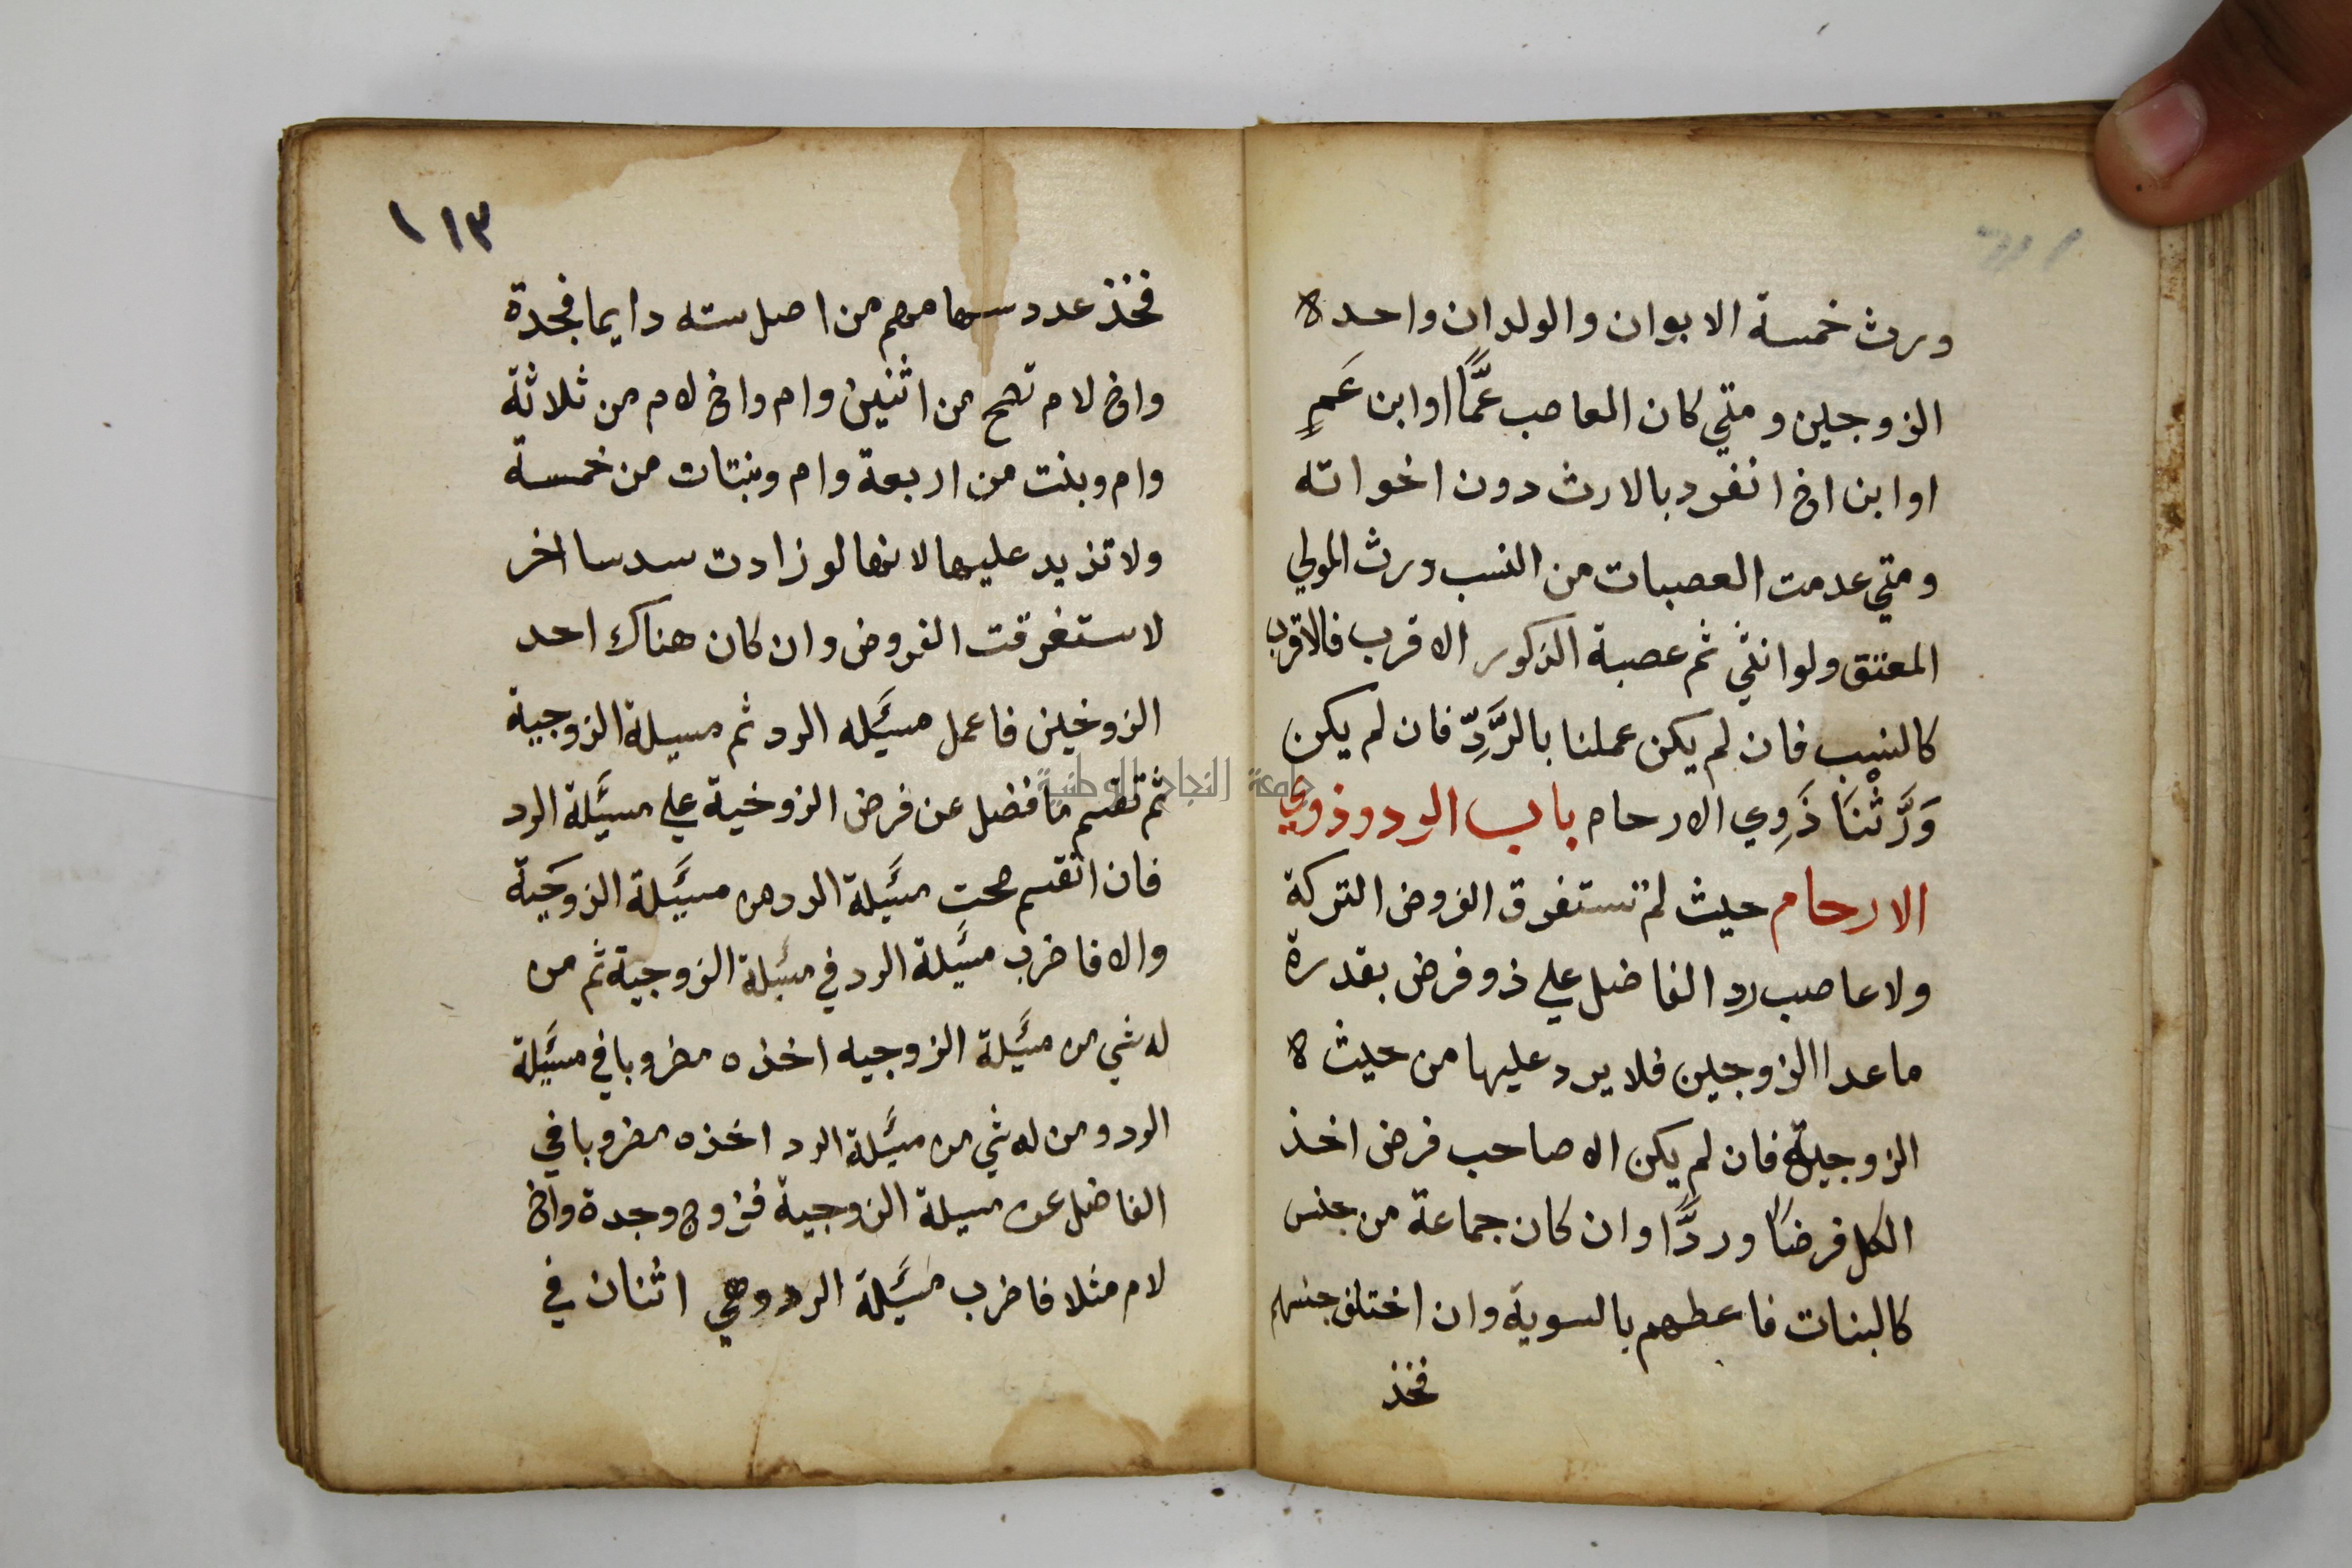 ورث خمسة الابوان والولدان واحده
الزوجين ومتي كان العاصب عمًّا اوابن عَمٍ
اوابن اخ انفرد بالارث دون اخواته
ومتي عدمت العصبات من النسب ورث المولي
المعتق ولوانثي ثم عصبة الذكور الاقرب فالاقرب
كالنسب فان لم يكن عملنا بالرَّدِّ فان لم يكن
وَرَّثْنَا ذَوِي الارحام باب الرد وذوي
الارحام حيث لم تستغرق الفروض التركة
ولاعاصب رد الفاضل علي ذو فرض بقدرة
ماعدا الزوجين فلا يرد عليها من حيث ه
الزوجية فان لم يكن الا صاحب فرض اخذ
الكل فرضًا وردًّا وان كان جماعة من جنس
كالبنات فاعطهم بالسوية وان اختلف جنسهم
فخذ
١١٣
فخذ عدد سهامهم من اصل سته دايما فجدة
واخ لام تصح من اثنين وام واخ لام من ثلاثة
وام وبنت من اربعة وام وبنتات من خمسة
ولاتزيد عليها لانها لو زادت سدسا اخر
لاستغرقت الفروض وان كان هناك احد
الزوخين فاعمل مسيَله الرد ثم مسيلة الزوجية
ثم تقسم ما فضل عن فرض الزوخية علي مسيَلة الرد
فان انقسم صحت مسيَلة الرد من مسيَلة الزوجَية
والا فاضرب مسيَلة الرد في مسيَلة الزوجية ثم من
له شي من مسيَلة الزوجيه اخذه مضروبا في مسيَلة
الرد ومن له شي من مسيَلة الرد اخذه مضروبا في
الفاضل عن مسيلة الزوجية فزوج وجدة واخ
لام مثلا فاضرب مسيَلة الرد وهي اثنان في
جامعة النجاح الوطنية